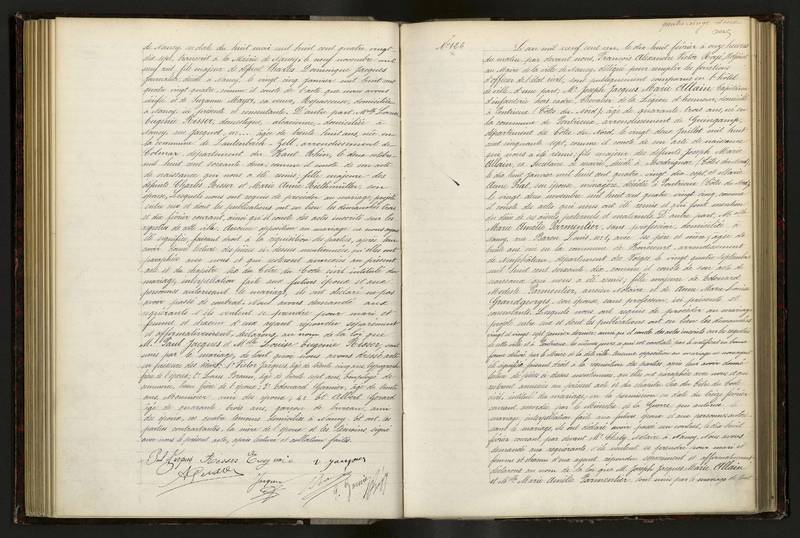 de Nancy en date du huit mai mil huit cent quatre vingt
dix sept, transcrit à la Mairie de Nancy le neuf novembre mil
neuf cent, fils majeur de défunt Charles Dominique Jacques
journalier, décédé à Nancy, le vingt cinq janvier mil huit cent
quatre vingt quatre, comme il conste de l'acte que nous avons
vérifié et de Suzanne Mayer, sa veuve, Repasseuse, domiciliée
à Nancy, ici présente et consentante. D'autre part, Melle Louise
Eugénie Risser, domestique, alsacienne, domiciliée à
Nancy, rue Jacquot, âgée de trente huit ans, née en
la commune de Lautenbach-Zell, arrondissement de
Colmar, département du Haut Rhin, le deux octobre
mil huit cent soixante deux, comme il conste de son acte
de naissance qui nous a été remis, fille majeure des
défunts Charles Risser et Marie Anne Riethmüller, son
épouse, Lesquels nous ont requis de procéder au mariage projeté
entre eux et dont les publications ont eu lieu les dimanches trois
et dix février courant, ainsi qu'il conste des actes inscrits sur les
registres de cette ville. Aucune opposition au mariage ne nous ayant
été signifiée, faisant droit à la réquisition des parties, après leur
avoir donné lecture des pièces ci-dessus mentionnées, qu'elles ont
paraphées avec nous et qui resteront annexées au présent
acte et du chapitre six du titre du Code civil intitulé du
mariage, interpellation faite aux futurs époux et aux
personnes autorisant le mariage, ils ont déclaré ne pas
avoir passé de contrat. Nous avons demandé aux
requérants s'ils veulent se prendre pour mari et
femme et chacun d'eux ayant répondu séparément
et affirmativement, déclarons au nom de la loi que
M. Paul Jacques et Melle Louise Eugénie Risser, sont
unis par le mariage, de tout quoi nous avons dressé acte
en présence des sieurs: 1° Victor Jacques, âgé de trente cinq ans, typographe
frère de l'époux; 2°
armurier, beau frère de l'époux; 3° Edouard Garnier, âgé de trente
ans, Menuisier, ami des époux; 4° et Albert Gérard
âgé de quarante trois ans, garçon de bureau, ami
des époux, ces quatre témoins domiciliés à Nancy. Et ont, les
parties contractantes, la mère de l'époux et les témoins signé
avec nous le présent acte, après lecture et collation faites.
Paul Jacques Risser Eugénie V. Jacques
A. Gérard Jacques E. Garnier
quatre-vingt
N° 124
L'an mil neuf cent un, le dix huit février à onze heures
du matin, par devant nous, François Alexandre Victor Adjoint
au Maire de la ville de Nancy, délégué pour remplir les fonctions
d'officier de l'état civil, sont publiquement comparus en l'hôtel
de ville, d'une part, Mr Joseph Jacques Marie Allain, Capitaine
d'infanterie hors cadre, Chevalier de la Légion d'honneur, domicilié
à Pontrieux (Côtes du Nord), âgé de quarante trois ans, né en
la commune de Pontrieux, arrondissement de Guingamp,
département des Côtes du Nord, le vingt deux juillet mil huit
cent cinquante sept, comme il conste de son acte de naissance
qui nous a été remis, fils majeur des défunts Joseph Marie
Allain, décédé à (Côtes du Nord)
le dix huit janvier mil huit cent quatre vingt dix sept et Marie
Anne son épouse, ménagère, décédée à Pontrieux (Côtes du Nord)
le vingt deux novembre mil huit cent quatre vingt cinq, comme il
conste des actes qui nous ont été remis et qui font mention
du décès de ses aïeuls paternels et maternels. D'autre part, Melle
Marie Amélie Parmentier, sans profession, domiciliée à
Nancy, rue Baron Louis, avec ses père et mère, âgée de
trente ans, née en la commune de arrondissement
de Neufchâteau, département des Vosges, le vingt quatre septembre
mil huit cent soixante dix, comme il conste de son acte de
naissance qui nous a été remis, fille majeure de Edouard
Modeste Parmentier, ancien Notaire et de Anne Marie Louise
Grandgeorges, son épouse, sans profession, ici présents et
consentants. Lesquels nous ont requis de procéder au mariage
projeté entre eux et dont les publications ont eu lieu les dimanches
vingt et vingt sept janvier dernier, ainsi qu'il conste des actes inscrits sur les registres
de cette ville et à Pontrieux
Aucune opposition au mariage ne nous ayant
été signifiée, faisant droit à la réquisition des parties, après leur avoir donné
lecture des pièces ci-dessus mentionnées, qu'elles ont paraphées avec nous et qui
resteront annexées au présent acte et du chapitre six du titre du Code
civil, intitulé du mariage, vu la permission en date du treize février
courant, accordée par le Ministre de la Guerre, qui autorise le
mariage, interpellation faite aux futurs époux et aux personnes autorisant
le mariage, ils ont déclaré avoir passé un contrat, le dix huit
février courant, par devant Me Notaire à Nancy. Nous avons
demandé aux requérants s'ils veulent se prendre pour mari et
femme et chacun d'eux ayant répondu séparément et affirmativement,
déclarons au nom de la loi que M. Joseph Jacques Marie Allain
et Melle Marie Amélie Parmentier, sont unis par le mariage, de tout